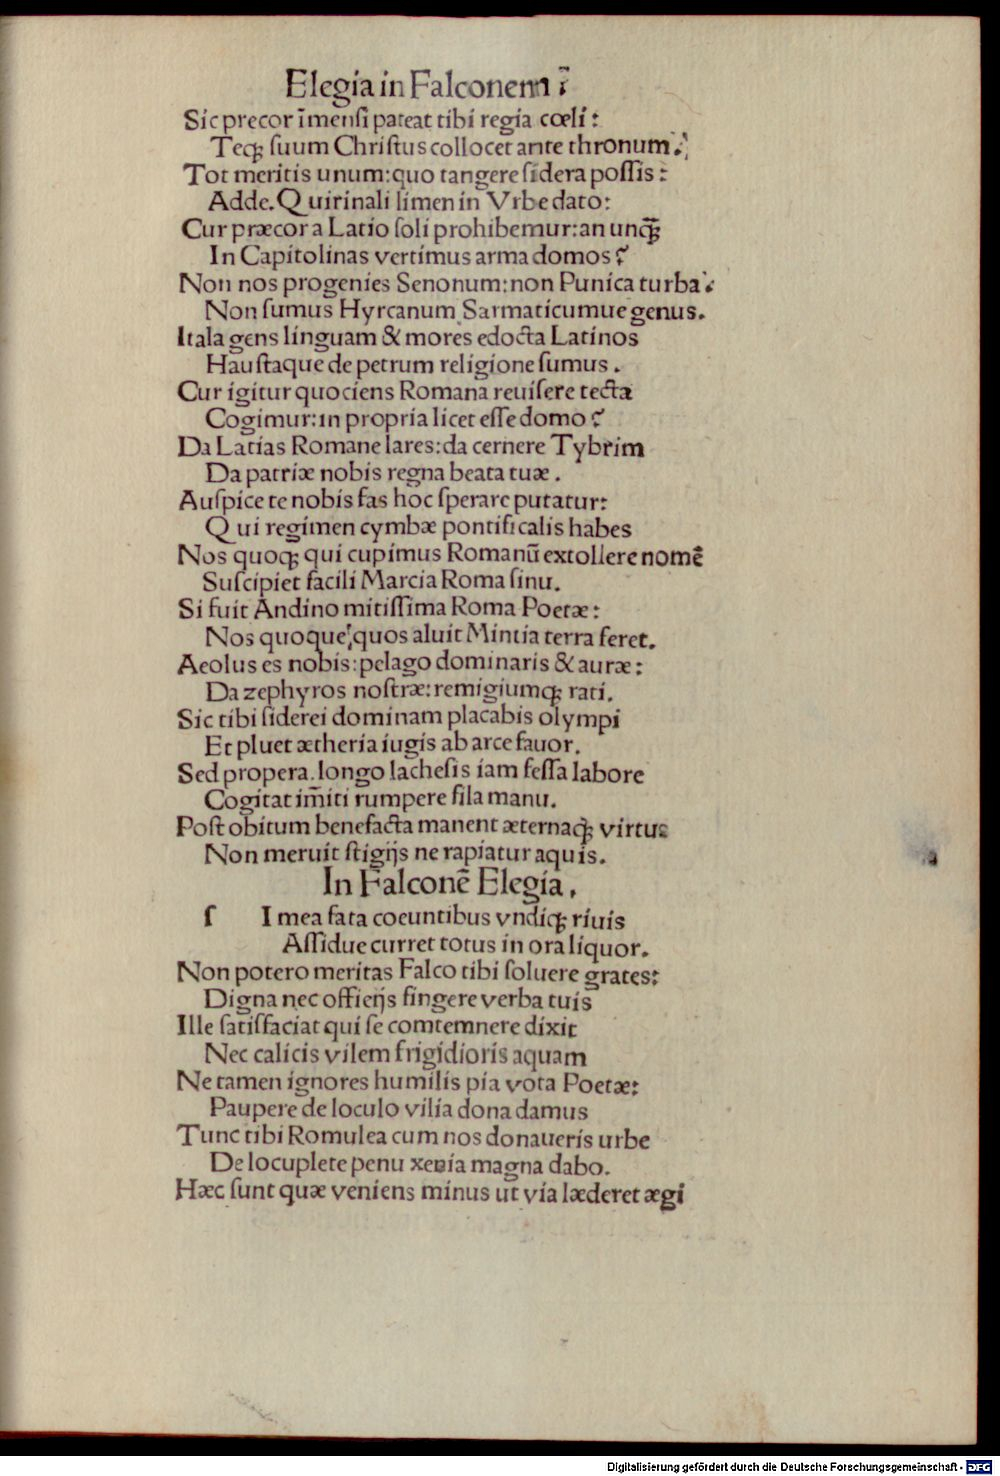 Elegia in Falconem ī
Sic precor īmensi pateat tibi regia cœli:
Teqꝫ ſuum Chriſtus collocet ante thronum.
Tot meritis unum: quo tangere ſidera poſſis:
Adde. Quirinali limen in Vrbe dato:
Cur præcor a Latio ſoli prohibemur: an unqꝫ̄
In Capitolinas vertimus arma domos?
Non nos progenies Senonum: non Punica turba:
Non ſumus Hyrcanum Sarmaticumue genus.
Itala gens linguam & mores edocta Latinos
Hauſtaque de petrum religione ſumus.
Cur igitur quociens Romana reuiſere tecta
Cogimur: in propria licet eſſe domo?
Da Latias Romane lares: da cernere Tybrim
Da patriæ nobis regna beata tuæ.
Auſpice te nobis fas hoc ſperare putatur:
Qui regimen cymbæ pontificalis habes
Nos quoqꝫ qui cupimus Romanū extollere nomē
Suſcipiet facili Marcia Roma ſinu.
Si fuit Andino mitiſſima Roma Poetæ:
Nos quoque: quos aluit Mintia terra feret.
Aeolus es nobis: pelago dominaris & auræ:
Da zephyros noſtræ: remigiumqꝫ rati.
Sic tibi ſiderei dominam placabis olympi
Et pluet ætheria iugis ab arce fauor.
Sed propera. longo lacheſis iam feſſa labore
Cogitat im̄iti rumpere fila manu.
Poſt obitum benefacta manent æternaqꝫ virtus
Non meruit ſtigijs ne rapiatur aquis.
In Falconē Elegia.
ſ I mea fata coeuntibus vndiqꝫ riuis
Aſſidue curret totus in ora liquor.
Non potero meritas Falco tibi ſoluere grates:
Digna nec officijs fingere verba tuis
Ille ſatiſfaciat qui ſe comtemnere dixit
Nec calicis vilem frigidioris aquam
Ne tamen ignores humilis pia vota Poetæ:
Paupere de loculo vilia dona damus
Tunc tibi Romulea cum nos donaueris urbe
De locuplete penu xenia magna dabo.
Hæc ſunt quæ veniens minus ut via læderet ægi
Digitalisierung gefördert durch die Deutsche Forschungsgemeinschaft - DFG